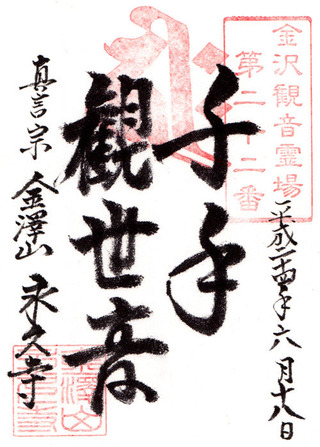 金沢観音霊場
第二十二番
平成二十四年六月十八日
千手
觀世音
真言宗
金澤山
永久寺